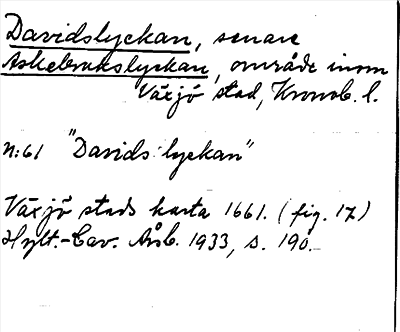 Davidslyckan, senare
Askebrukslyckan, område inom
Växjö stad, Kronob. l.
n:61 "Davids lyckan"
Växjö stads karta 1661. (fig. 17)
Hylt.-Cav. Årsb. 1933, s. 190.